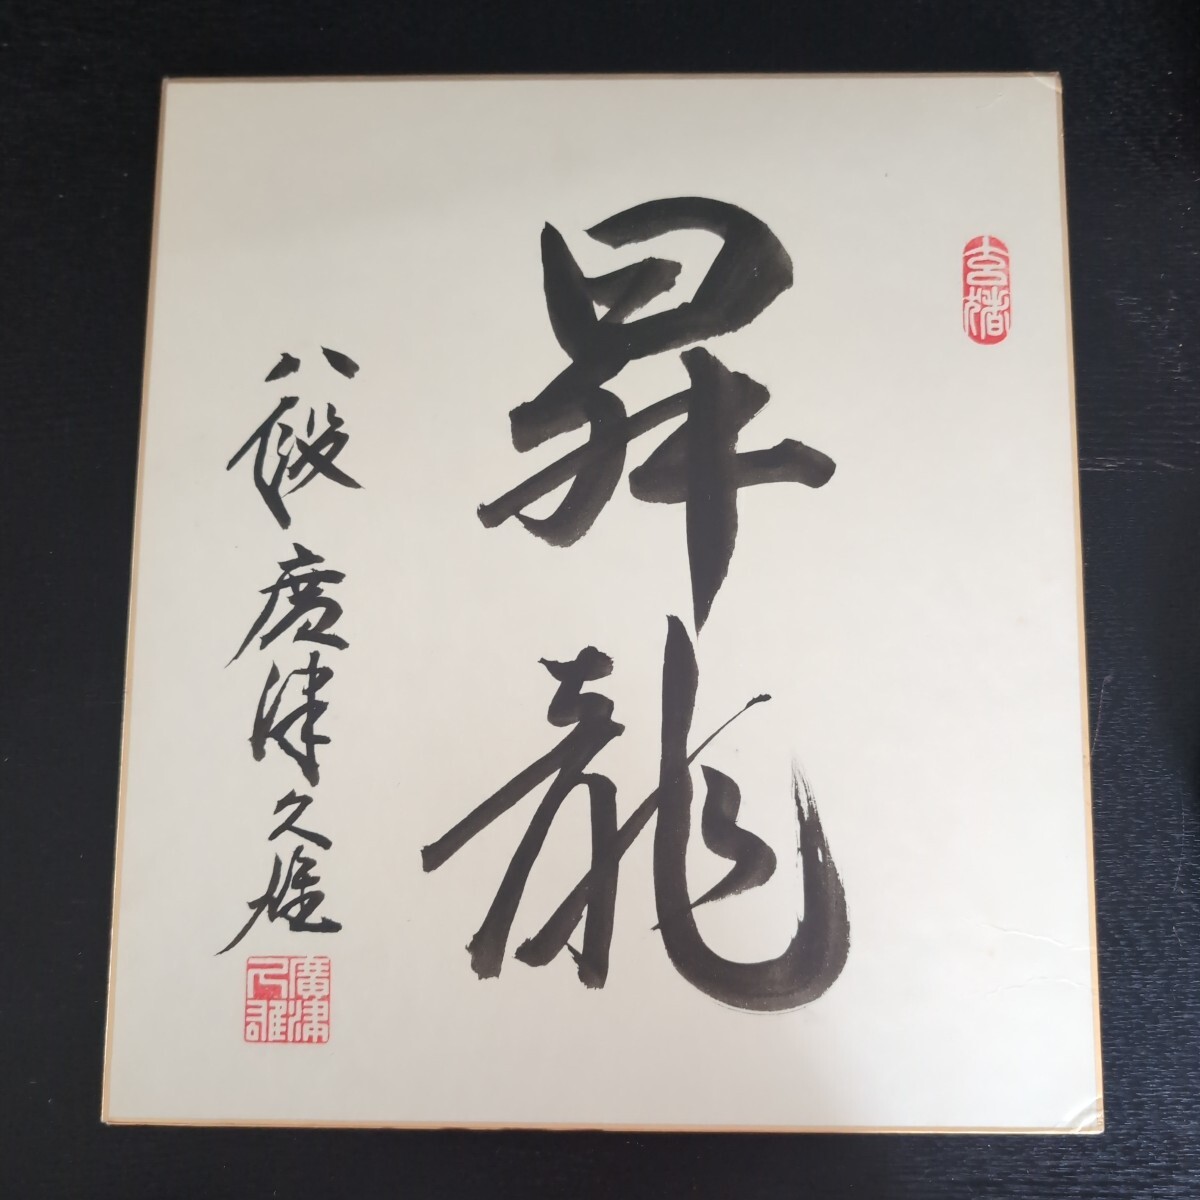 昇龍
八段 廣津久雄
廣津久雄